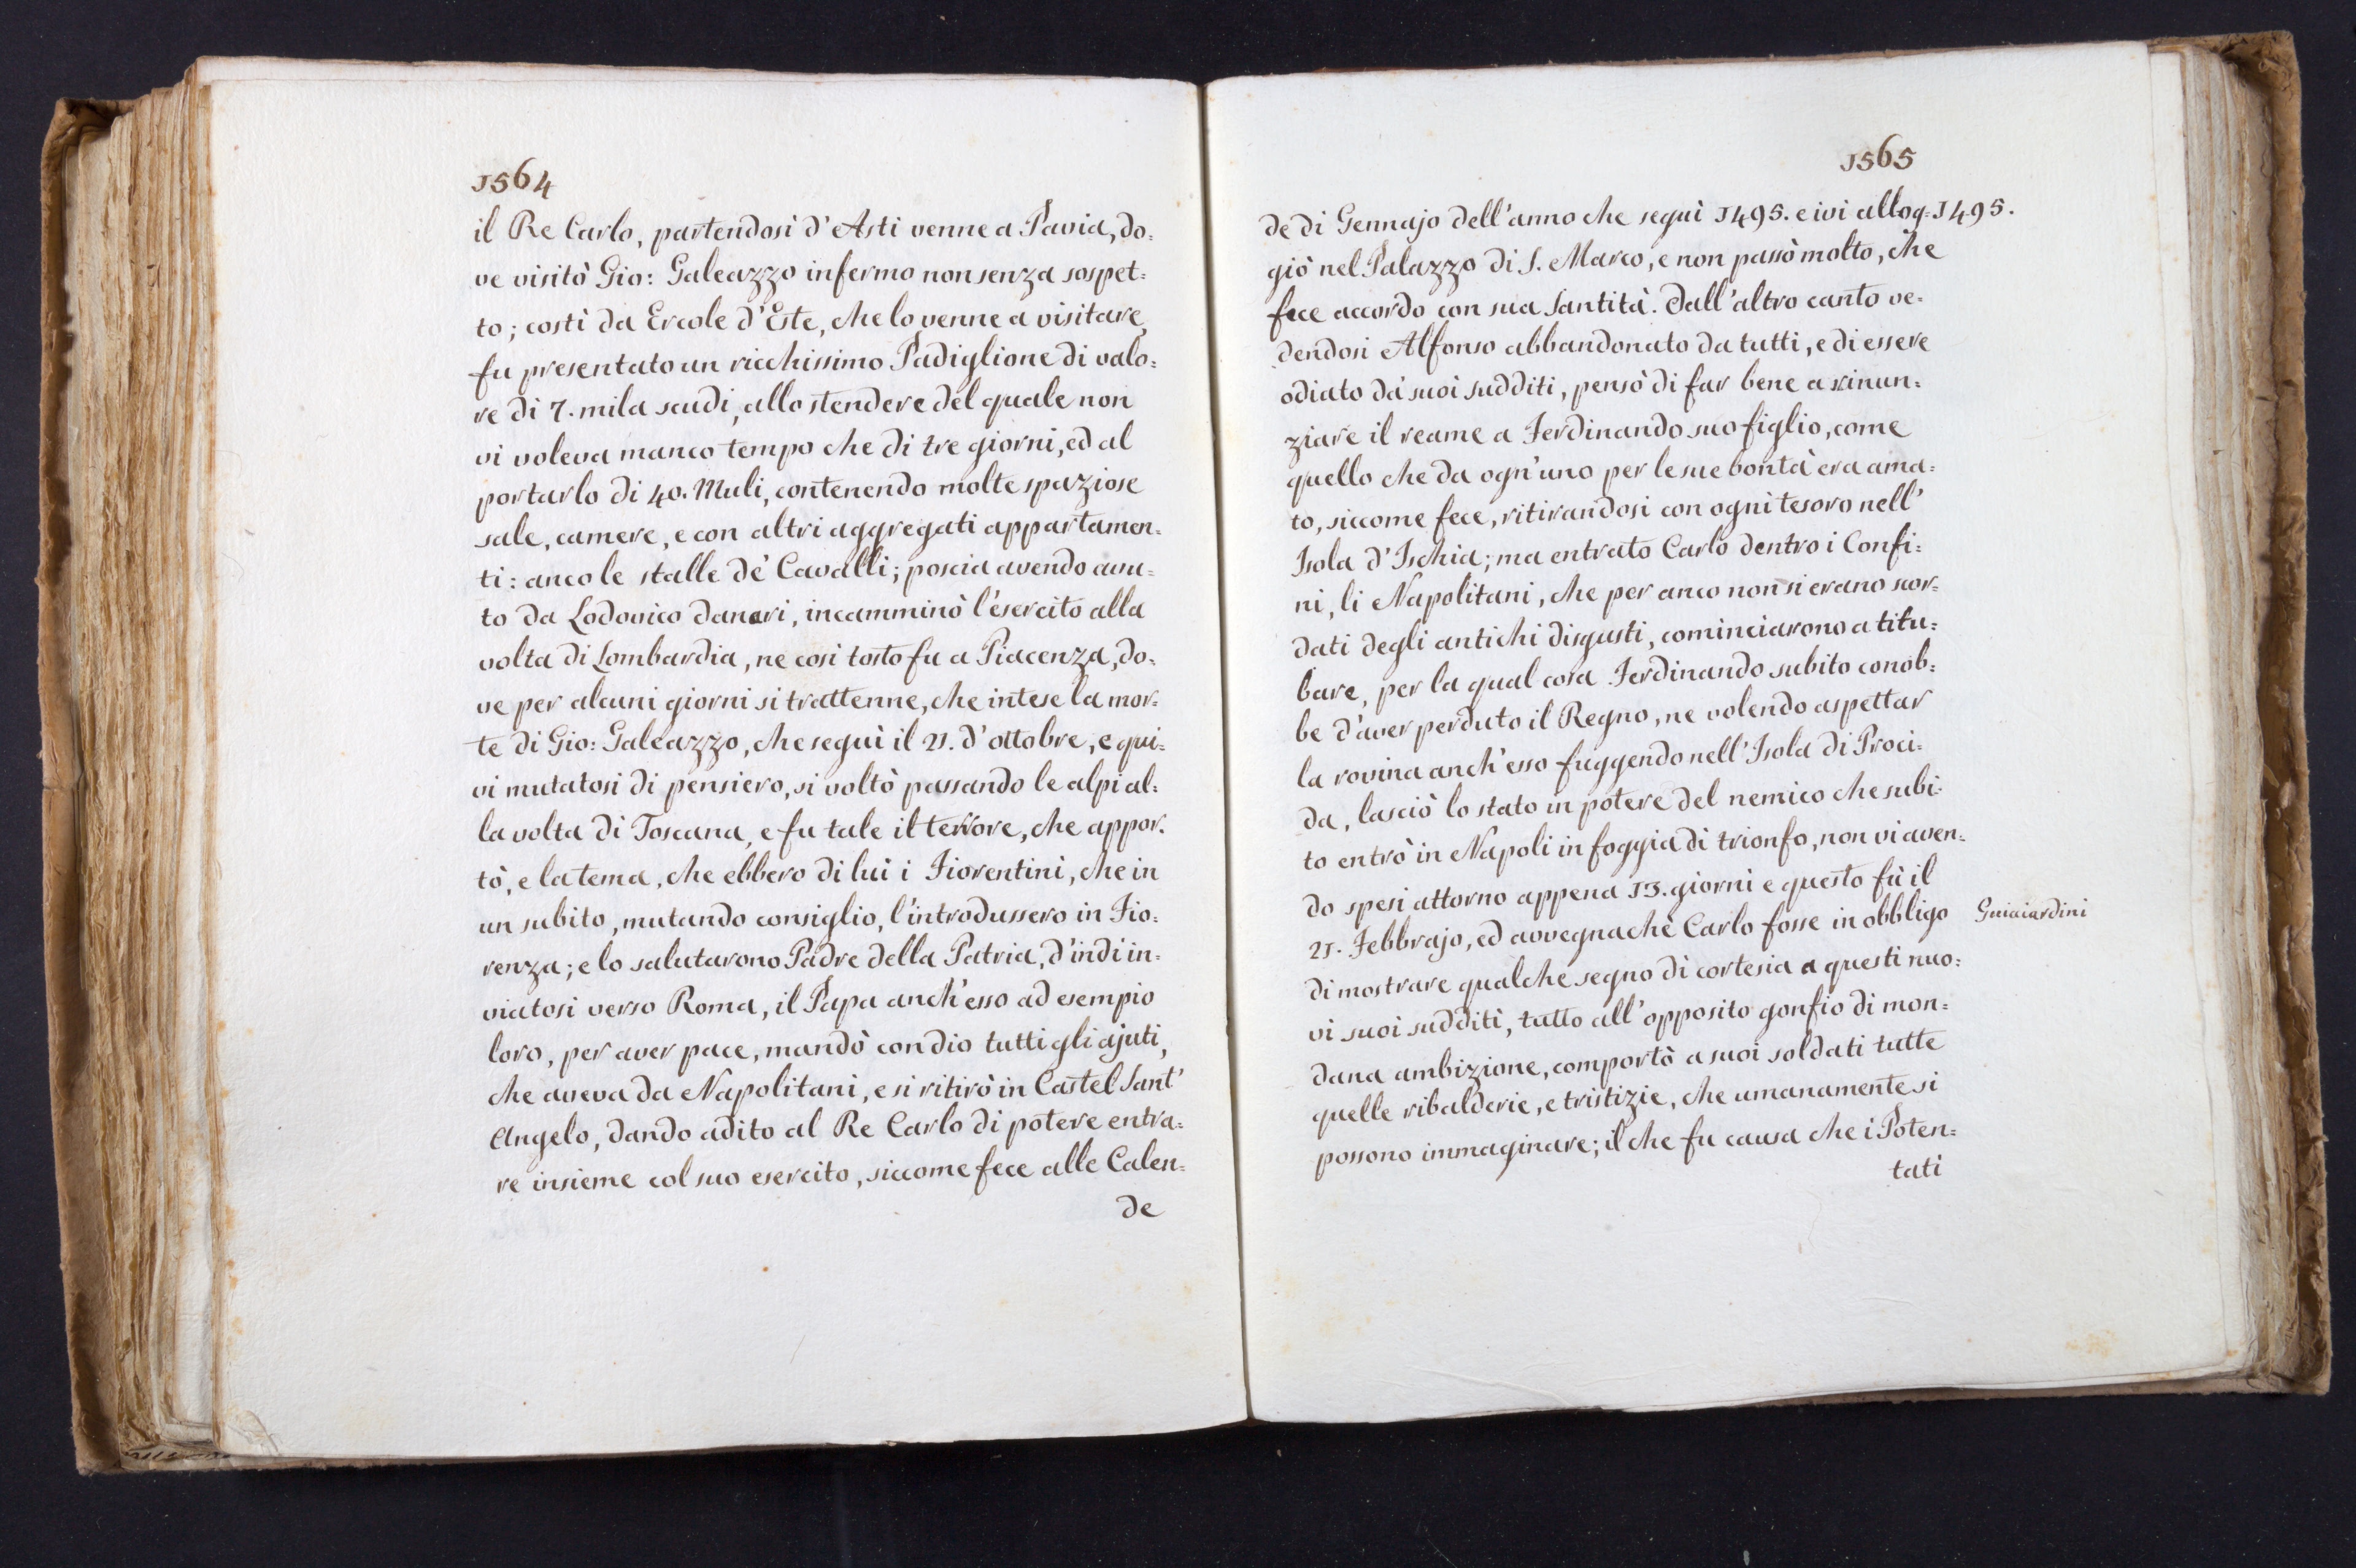 1564
il Re Carlo, partendosi d'Asti venne a Pavia, do=
ve visitò Gio: Galeazzo infermo non senza sospet=
to; costì da Ercole d'Este, che lo venne à visitare,
fu presentato un ricchissimo Padiglione di valo=
re di 7. mila scudi, allo stendere del quale non
vi voleva manco tempo che di tre giorni, ed al
portarlo di 40. Muli, contenendo molte spaziose
sale, camere, e con altri aggregati appartamen=
ti: anco le stalle de' Cavalli; poscia avendo avu=
to da Lodovico danari, incamminò l'esercito alla
volta di Lombardia, ne così tosto fu a Piacenza, do=
ve per alcuni giorni si trattenne, che intese la mor=
te di Gio: Galeazzo, che seguì il 21. d'ottobre, e qui=
vi mutatosi di pensiero, si voltò passando le alpi al=
la volta di Toscana, e fu tale il terrore, che appor=
tò, e la tema, che ebbero di lui i Fiorentini, che in
un subito, mutando consiglio, l'introdussero in Fio=
renza; e lo salutarono Padre della Patria, d'indi in=
viatosi verso Roma, il Papa anch'esso ad esempio
loro, per aver pace, mandò con dio tutti gli ajuti,
che aveva da Napolitani, e si ritirò in Castel Sant'
Angelo, dando adito al Re Carlo di potere entra=
re insieme col suo esercito, siccome fece alle Calen=
de
1565
de di Gennajo dell'anno che seguì 1495. e ivi allog= 1495.
giò nel Palazzo di S. Marco, e non passò molto, che
fece accordo con sua Santità. Dall'altro canto ve=
dendosi Alfonso abbandonato da tutti, e di essere
odiato da' suoi sudditi, pensò di far bene a rinun=
ziare il reame a Ferdinando suo figlio, come
quello che da ogn'uno per le sue bontà era ama=
to, siccome fece, ritirandosi con ogni tesoro nell'
Isola d'Ischia; ma entrato Carlo dentro i Confi=
ni, li Napolitani, che per anco non si erano scor=
dati degli antichi disgusti, cominciarono a titu=
bare, per la qual cosa Ferdinando subito conob=
be d'aver perduto il Regno, ne volendo aspettar
la rovina anch'esso fuggendo nell'Isola di Proci=
da, lasciò lo stato in potere del nemico che subi=
to entrò in Napoli in foggia di trionfo, non vi aven=
do spesi attorno appena 13. giorni e questo fù il
21. Febbrajo, ed avvegnachè Carlo fosse in obbligo Guiciardini
di mostrare qualche segno di cortesia a questi nuo=
vi suoi sudditi, tutto all'opposito gonfio di mon=
dana ambizione, comportò a suoi soldati tutte
quelle ribalderie, e tristizie, che umanamente si
possono immaginare; il che fu causa che i Poten=
tati